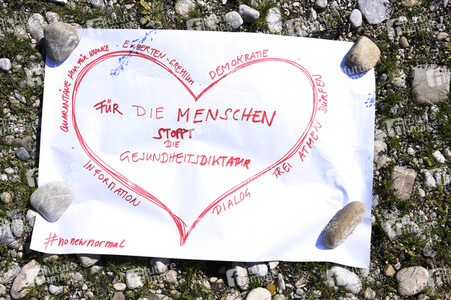 EXPERTEN-GREMIUM
DEMOKRATIE
FREI ATMEN DÜRFEN
DIALOG
INFORMATION
QUARANTÄNE
FÜR DIE MENSCHEN
STOPPT
DIE
GESUNDHEITSDIKTATUR
#nonewnormal